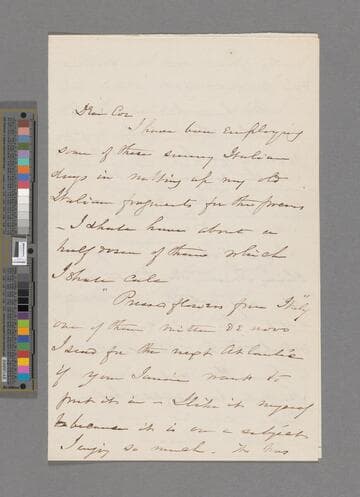 Dear Cox
I have been employing
some of these sunny Italian
days in up my old
Italian fragments for the press
– I shall have about a
half dozen of them which
I shall call
"Pressed flowers from Italy"
one of them written de novo
I send for the next Atlantic
if your Junior wants to
put it in – I like it myself
because it is on a subject
I enjoy so much. He has